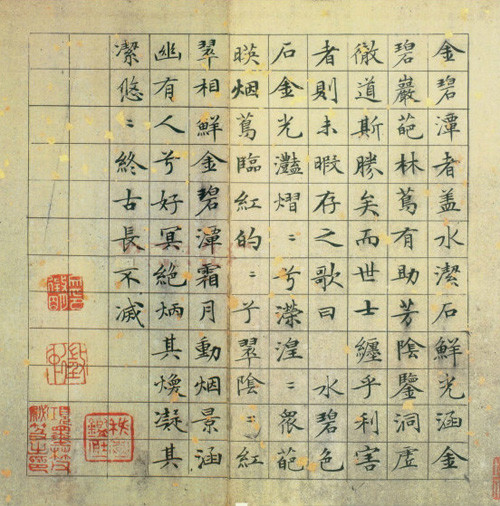 金碧潭者盖水潔石鮮光涵金
碧巖葩林蔦有助芳陰鑒洞虛
徹道斯勝矣而世士纏乎利害
者則未暇存之歌曰 水碧色
石金光灩熠〻兮瀠湟〻眾葩
暎烟蔦臨紅的〻兮翠陰〻紅
翠相鮮金碧潭霜月動烟景涵
幽有人兮好冥絕炳其煥凝其
潔悠〻終古長不滅
項墨林父秘笈之印